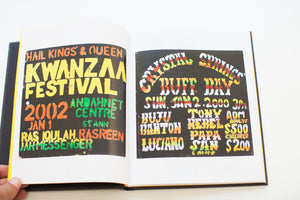 HAIL KINGS & QUEEN
KWANZAA
FESTIVAL
2002
JAN 1
ANDAHNET
CENTRE
ST ANN
RAS IQULAH
RASREEN
JAHMESSENGER
CRYSTAL SPRINGS
BUFF BAY
SUN. JAN 2-2000
BUJU
BANTON
LUCIANO
TONY
REBEL
PAPA
SAN
& more
ADM
ADULTS
$500
CHILDREN
$200